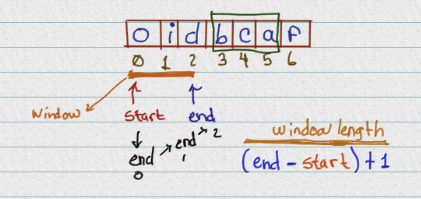 o i d b c a f
0 1 2 3 4 5 6
window
start end
end → end → 2
0 1
window length
(end - start) + 1